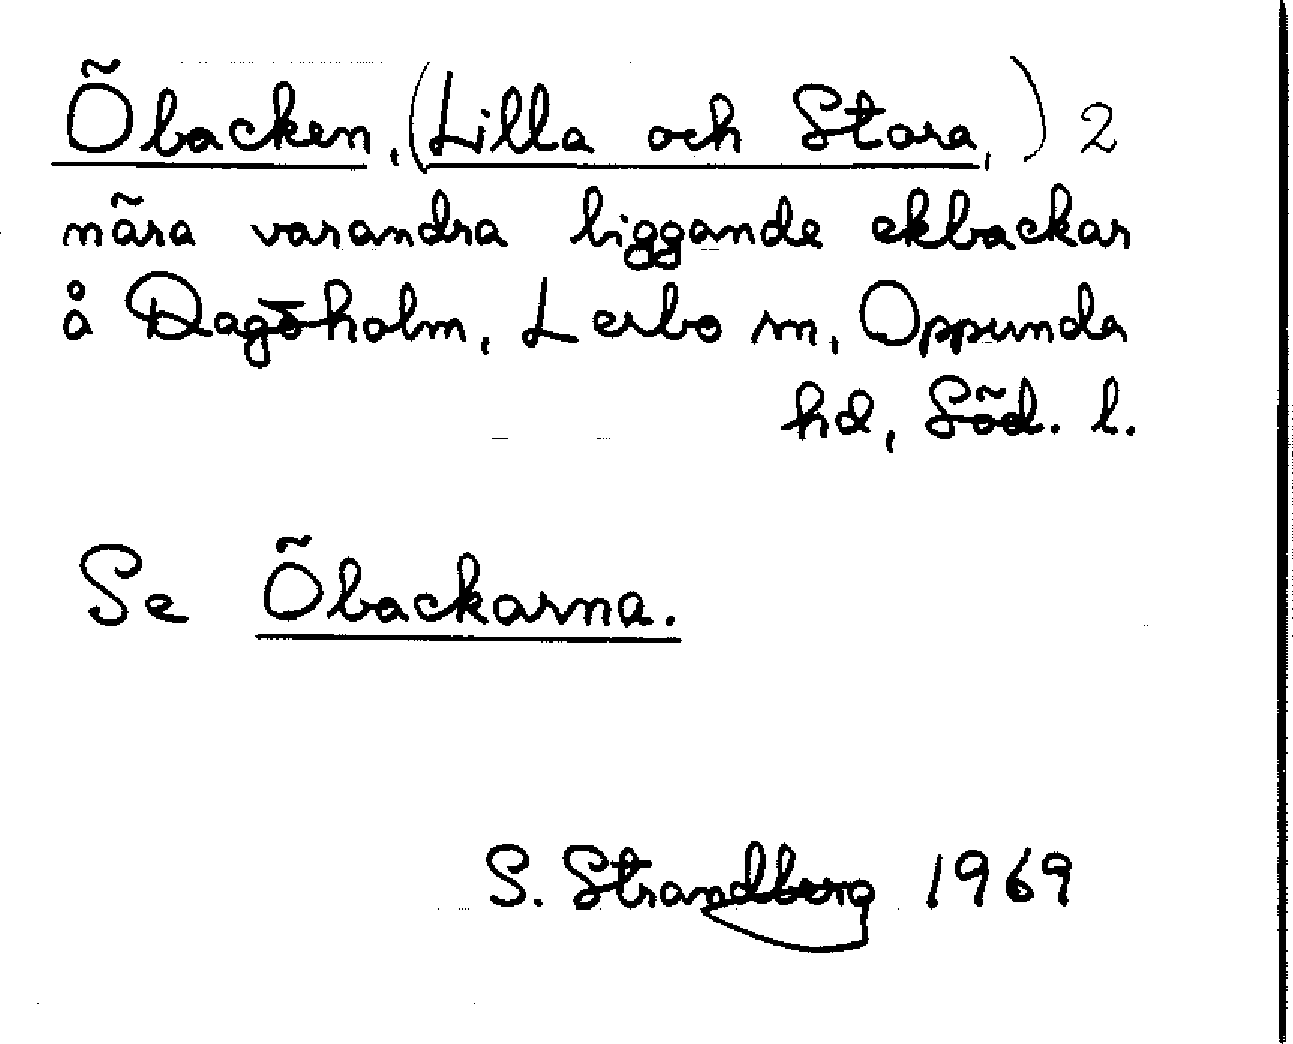 Öbacken, (Lilla och Stora,) 2
nära varandra liggande ekbackar
å Dagöholm, Lerbo sn, Oppunda
hd, Söd. l.
Se Öbackarna.
S. Strandberg 1969